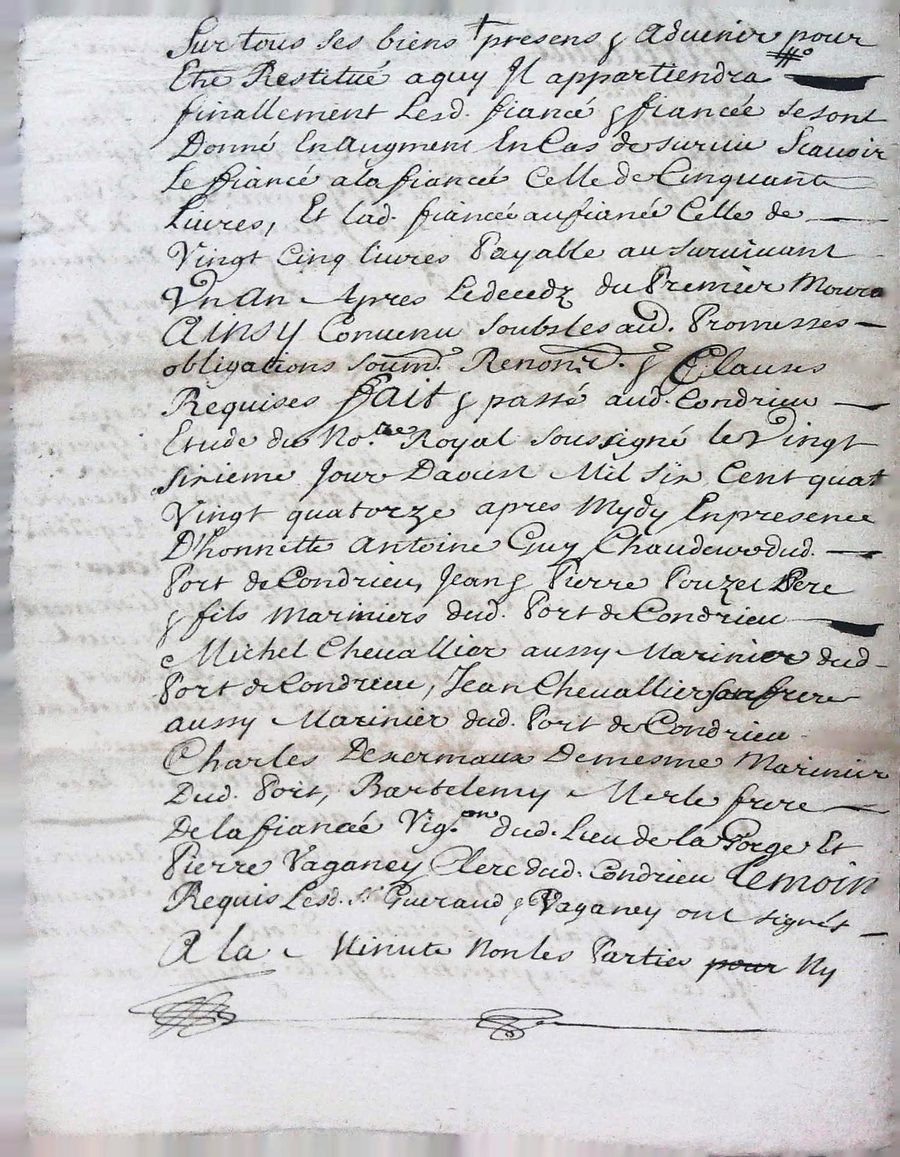 Sur tous ses biens + presens & aduenir pour
Etre Restitué aquy Jl appartiendra
finallement Lesd. fiancé & fiancée sesont
Donné En augment En Cas de suruie Scauoir
Le fiancé a la fiancée Celle de Cinquante
Liures, Et lad. fiancée au fiancé Celle de
Vingt Cinq liures Payable au suruiuant
Vn An Apres Ledecedz du Premier Moura
Ainsy Conuenu soubs les aud. Promesses
obligations soumd. Renoncd. & Clauses
Requises ffait & passé aud. Condrieu
Etude du No.re Royal soussigné le Vingt
sixieme Jour Daoust Mil six Cent quat
Vingt quatorze apres Mydy En presence
D'honnette Antoine Guy dud.
Port de Condrieu, Jean & Pierre Pouzet Pere
& fils Mariniers dud. Port de Condrieu
Michel Cheuallier aussy Marinier dud
Port de Condrieu, Jean Cheuallier son frere
aussy Marinier dud. Port de Condrieu
Charles Dexermaux Demesme Marinier
Dud. Port, Bartelemy Merle frere
De la fiancée Vig.on dud. Lieu de la Forge Et
Pierre Vaganey Clerc dud. Condrieu temoin
Requis Lesd. sr Gueraud & Vaganey ont signés
A la Minute Non les Partie pour Ny